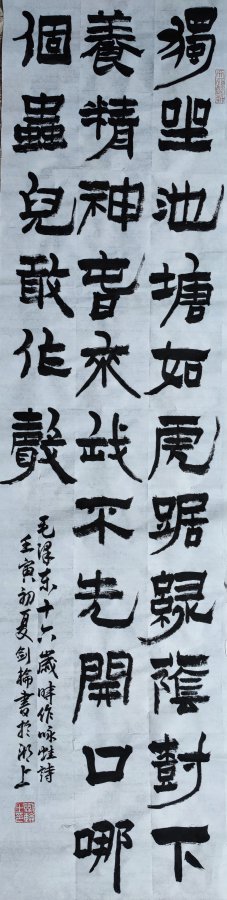 獨坐池塘如虎踞綠蔭樹下
養精神春來我不先開口哪
個蟲兒敢作聲
毛澤东十六歲時作咏蛙詩
壬寅初夏劍楠書於滬上